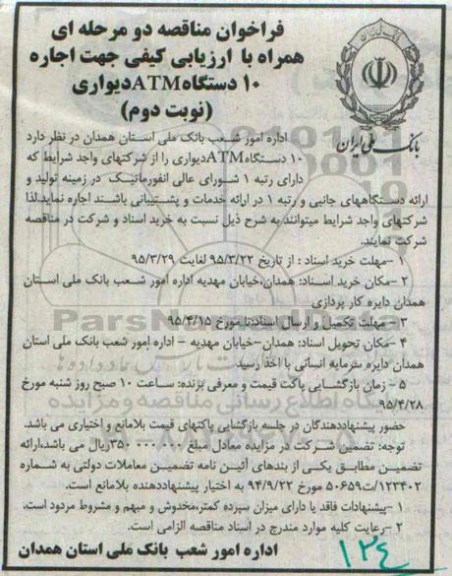 فراخوان مناقصه دو مرحله ای
همراه با ارزیابی کیفی جهت اجاره
۱۰ دستگاهATMدیواری
(نوبت دوم)
بانک ملی ایران
اداره امور شعب بانک ملی استان همدان در نظر دارد
۱۰ دستگاهATMدیواری را از شرکتهای واجد شرایط که
دارای رتبه ۱ شورای عالی انفورماتیک در زمینه تولید و
ارائه دستگاههای جانبی و رتبه ۱ در ارائه خدمات و پشتیبانی باشند اجاره نماید.لذا
شرکتهای واجد شرایط میتوانند به شرح ذیل نسبت به خرید اسناد و شرکت در مناقصه
شرکت نمایند.
۱ -مهلت خرید اسناد : از تاریخ ۹۵/۳/۲۲ لغایت ۹۵/۳/۲۹
۲ -مکان خرید اسناد: همدان،خیابان مهدیه اداره امور شعب بانک ملی استان
همدان دایره کار پردازی
۳ - مهلت تکمیل و ارسال اسناد:تا مورخ ۹۵/۴/۱۵
۴ -مکان تحویل اسناد: همدان -خیابان مهدیه - اداره امور شعب بانک ملی استان
همدان دایره سرمایه انسانی با اخذ رسید
۵ - زمان بازگشایی پاکت قیمت و معرفی برنده: ساعت ۱۰ صبح روز شنبه مورخ
۹۵/۴/۲۸
حضور پیشنهاددهندگان در جلسه بازگشایی پاکتهای قیمت بلامانع و اختیاری می باشد.
توجه: تضمین شرکت در مزایده معادل مبلغ ۳۵۰/۰۰۰/۰۰۰ریال می باشد،ارائه
تضمین مطابق یکی از بندهای آئین نامه تضمین معاملات دولتی به شماره
۱۲۳۴۰۲/ت۵۰۶۵۹ مورخ ۹۴/۹/۲۲ به اختیار پیشنهاددهنده بلامانع است.
۱-پیشنهادات فاقد یا دارای میزان سپرده کمتر،مخدوش و مبهم و مشروط مردود است.
۲ -رعایت کلیه موارد مندرج در اسناد مناقصه الزامی است.
اداره امور شعب بانک ملی استان همدان
۱۳۴
ParsNamad
پایگاه اطلاع رسانی مناقصه و مزایده